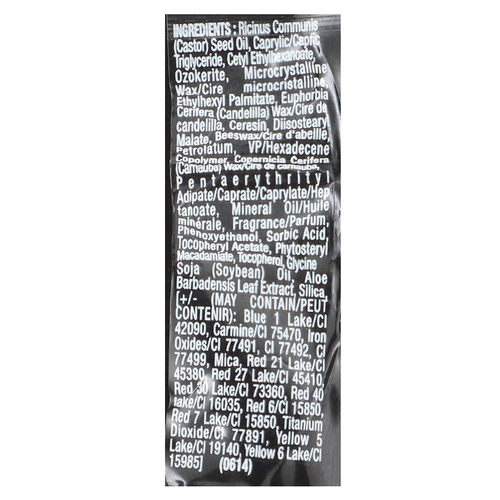 INGREDIENTS : Ricinus Communis
(Castor) Seed Oil, Caprylic/Capric
Triglyceride, Cetyl Ethylhexanoate,
Ozokerite, Microcrystalline
Wax/Cire microcristalline,
Ethylhexyl Palmitate, Euphorbia
Cerifera (Candelilla) Wax/Cire de
candelilla, Ceresin, Diisostearyl
Malate, Beeswax/Cire d'abeille,
Petrolatum, VP/Hexadecene
Copolymer, Copernicia Cerifera
(Carnauba) Wax/Cire de carnauba,
Pentaerythrityl
Adipate/Caprate/Caprylate/Hep
tanoate, Mineral Oil/Huile
minérale, Fragrance/Parfum,
Phenoxyethanol, Sorbic Acid,
Tocopheryl Acetate, Phytosteryl
Macadamiate, Tocopherol, Glycine
Soja (Soybean) Oil, Aloe
Barbadensis Leaf Extract, Silica,
[+/- (MAY CONTAIN/PEUT
CONTENIR): Blue 1 Lake/CI
42090, Carmine/CI 75470, Iron
Oxides/CI 77491, CI 77492, CI
77499, Mica, Red 21 Lake/CI
45380, Red 27 Lake/CI 45410,
Red 30 Lake/CI 73360, Red 40
lake/CI 16035, Red 6/CI 15850,
Red 7 Lake/CI 15850, Titanium
Dioxide/CI 77891, Yellow 5
Lake/CI 19140, Yellow 6 Lake/CI
15985] (0614)